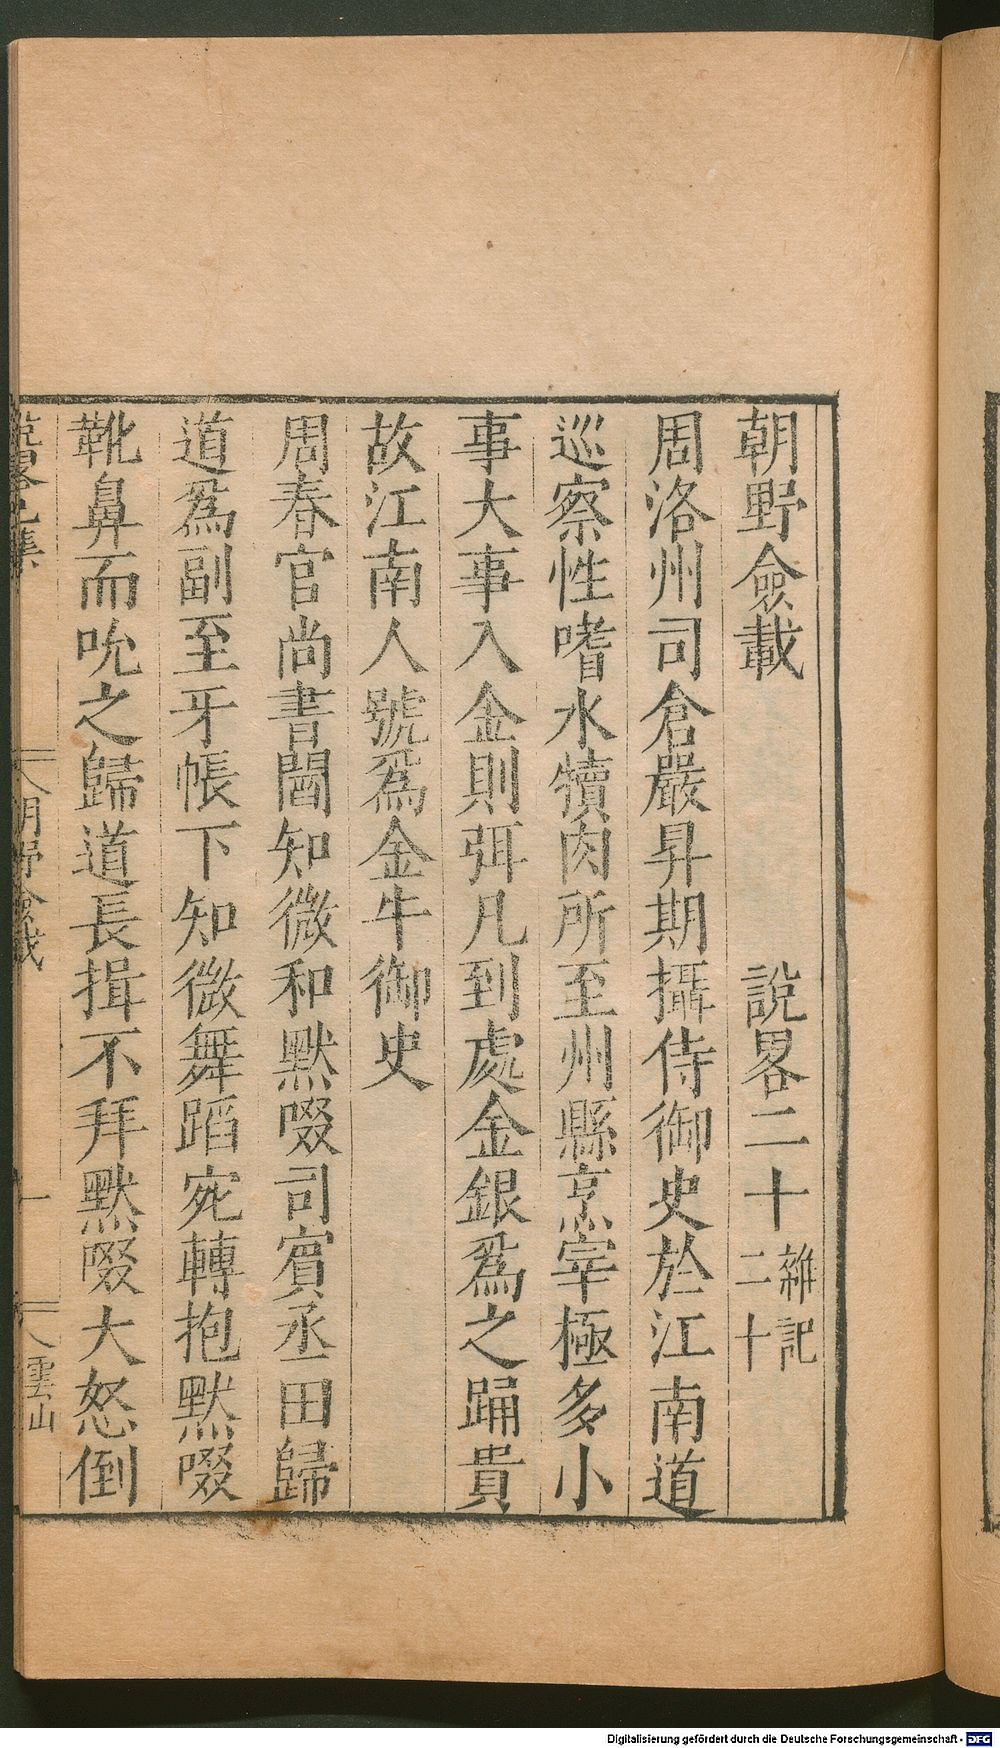 朝野僉載　　　　說畧二十 雜記二十
周洛州司倉嚴昇期攝侍御史於江南道
巡察性嗜水犢肉所至州縣烹宰極多小
事大事入金則弭凡到處金銀爲之踊貴
故江南人號爲金牛御史
周春官尚書閻知微和默啜司賓丞田歸
道爲副至牙帳下知微舞蹈宛轉抱默啜
靴鼻而吮之歸道長揖不拜默啜大怒倒
朝野僉載
一
雲山
Digitalisierung gefördert durch die Deutsche Forschungsgemeinschaft - DFG